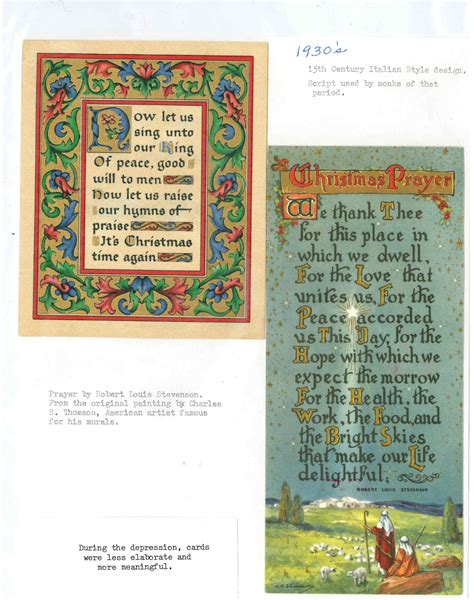 1930's
15th Century Italian Style design.
Script used by monks of that
period.
Now let us
sing unto
our King
Of peace, good
will to men
Now let us raise
our hymns of
praise
It's Christmas
time again
Christmas Prayer
We thank Thee
for this place in
which we dwell,
For the Love that
unites us, For the
Peace accorded
us This Day, for the
Hope with which we
expect the morrow
For the Health, the
Work, the Food, and
the Bright Skies
that make our Life
delightful;
ROBERT LOUIS STEVENSON
Prayer by Robert Louis Stevenson.
From the original painting by Charles
R. Thomson, American artist famous
for his murals.
During the depression, cards
were less elaborate and
more meaningful.